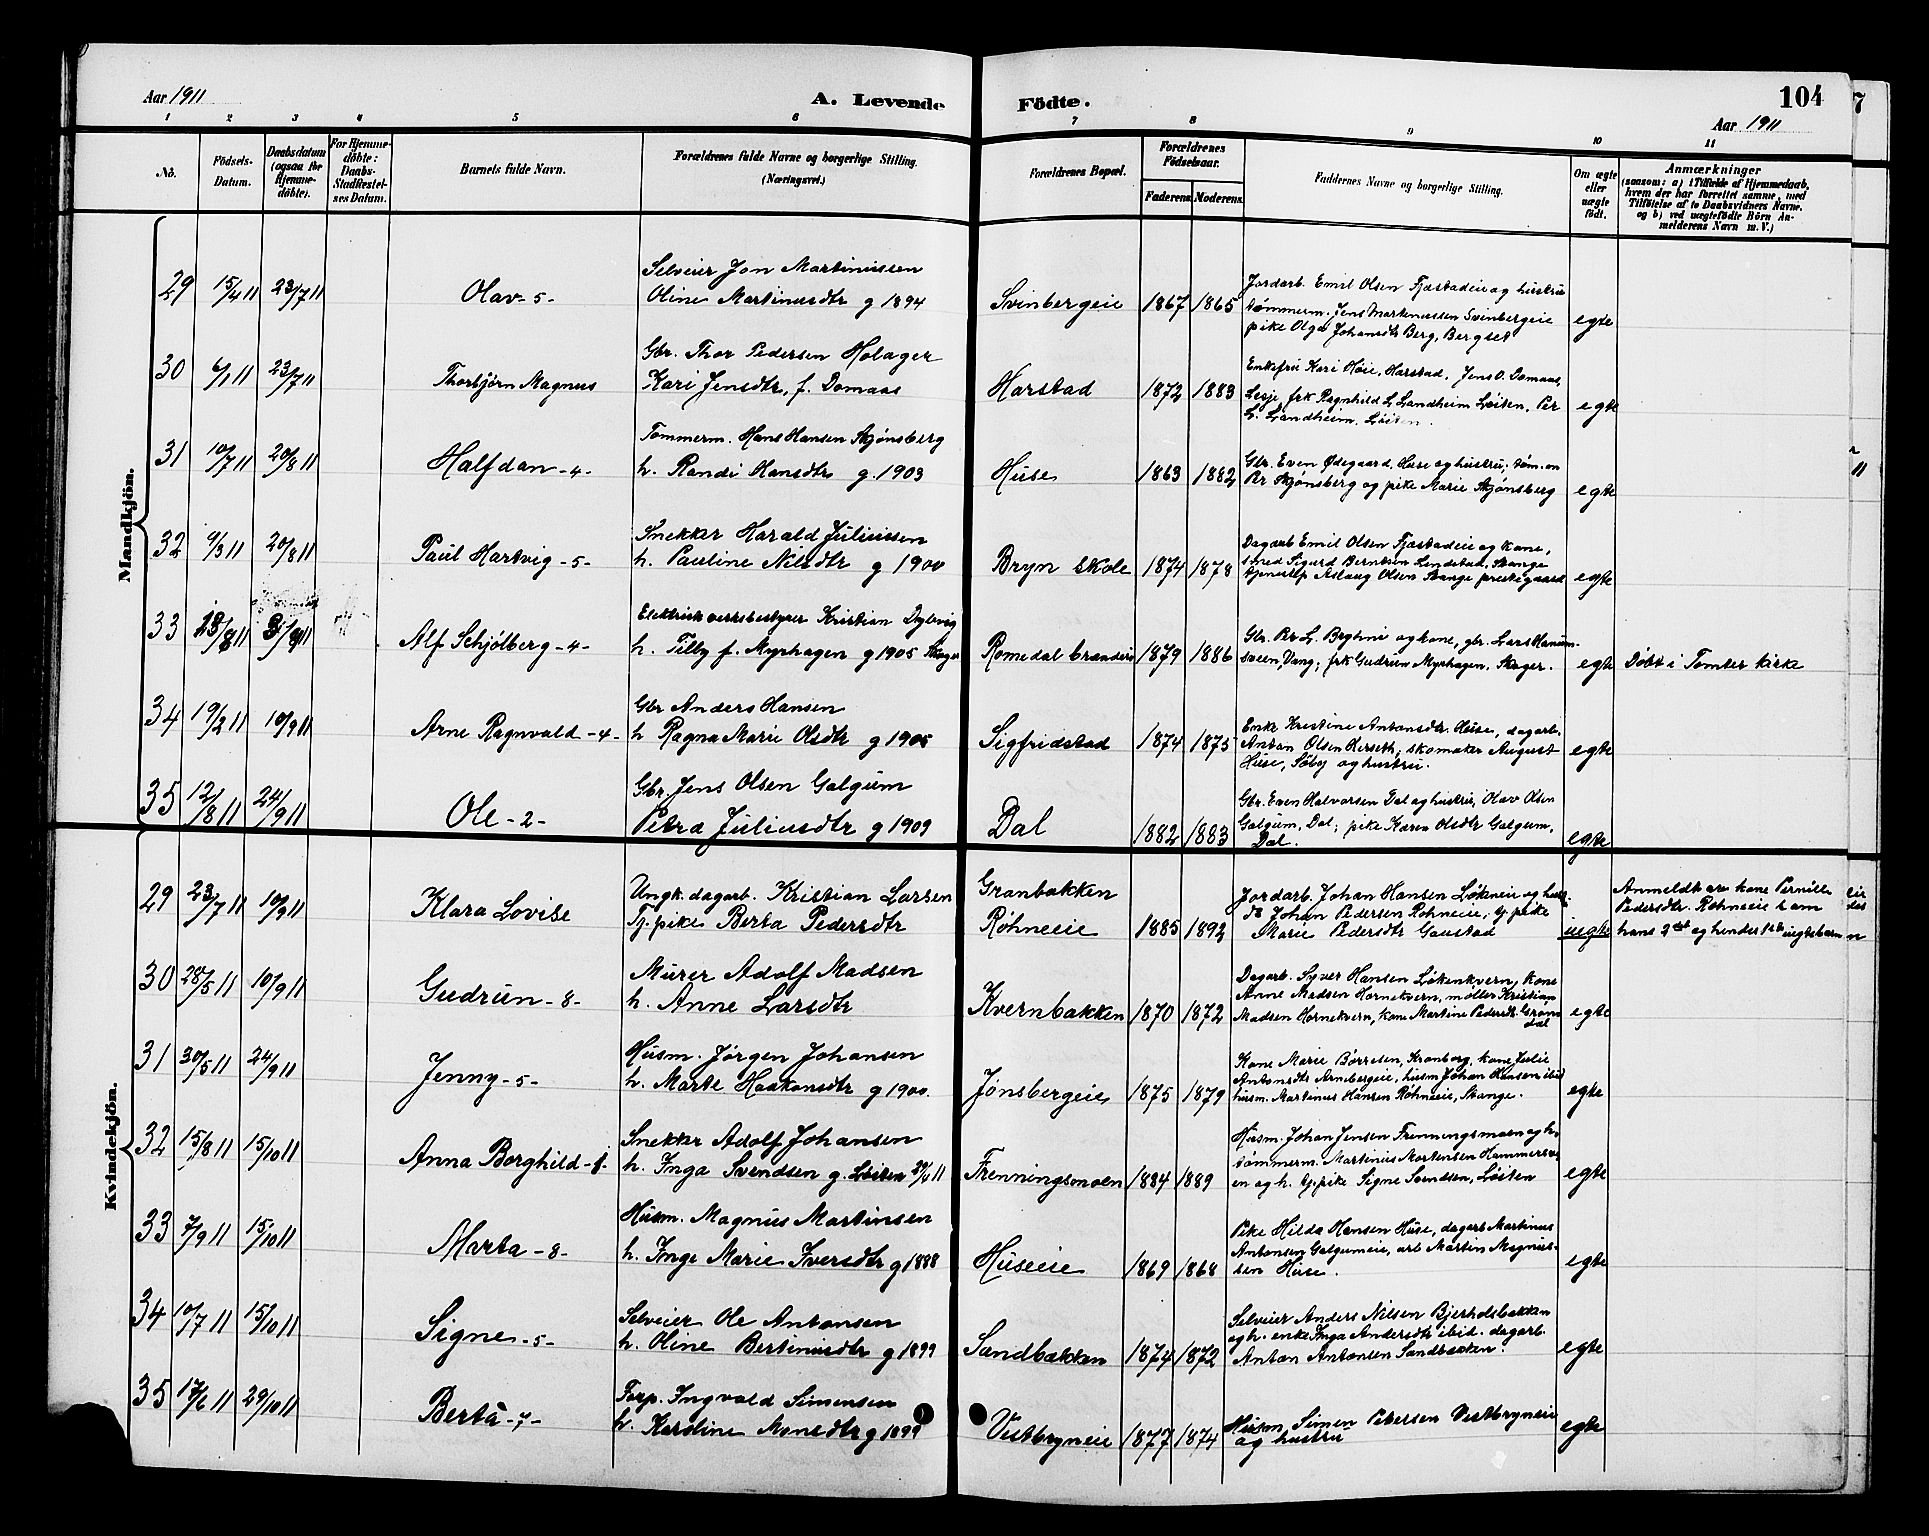 Aar 1911
A. Levende Födte.
104
Aar 1911
1 2 3 4 5 6 7 8 9 10 11
No.
Födsels-Datum.
Daabsdatum (ogsaa for Hjemmedöbte).
For Hjemmedöbte: Daabs-Stadfæstelses Datum.
Barnets fulde Navn.
Forældrenes fulde Navne og borgerlige Stilling. (Næringsvei.)
Forældrenes Bopæl.
Forældrenes Födselsaar.
Faderens. Moderens.
Faddernes Navne og borgerlige Stilling.
Om ægte eller uægte födt.
Anmærkninger
(saasom: a) i Tilfælde af Hjemmedaab, hvem der har forrettet samme, med Tilföielse af to Daabsvidners Navne, og b) ved uægtefödte Börn Anmelderens Navn m. V.)
Mandkjön.
29 15/4 11 23/7 11 Olav - 5 -
Selveier Jon Martinussen
Oline Martinusdtr g 1894
Svinbergeie 1867 1865
Jordarb. Emil Olsen Fjæstadeie og hustru
tømmerm. Jens Martinussen Svinbergeie
pike Olga Johansdtr Berg, Bergset
egte
30 6/1 11 23/7 11 Thorbjörn Magnus
Gbr. Thor Pedersen Holager
Kari Jensdtr, f. Domaas
Harstad 1872 1883
Enkefru Kari Høie, Harstad, Jens O. Domaas,
Lesje frk Ragnhild L Landheim Løiten, Per
L. Landheim, Løiten.
egte
31 10/7 11 20/8 11 Halfdan - 4 -
Tømmerm. Hans Hansen Skjønsberg
h. Randi Hansdtr g. 1903
Huse 1863 1882
Gbr. Even Ødegaard, Huse og hustru; tøm.m
Pr Skjønsberg og pike Marie Skjønsberg
egte
32 9/3 11 20/8 11 Paul Hartvig - 5 -
Snekker Harald Juliussen
h. Pauline Nilsdtr g 1900
Bryn skole 1874 1878
Dagarb Emil Olsen Fjæstadeie og kone,
smed Sigurd Berntsen Lindstad, Stange
Aslaug Olsen Stange prestegaard
egte
33 11 11 Alf Schjölberg - 4 -
Elektrisk verksbestyrer Kristian Dybvig
h. Tilly f. Myrhagen g 1905
Romedal brænderi 1879 1886
Gbr. Pr L. Bryhni og kone, gbr. Lars Hanum-
sveen, Vang; frk Gudrun Myrhagen,
egte
Döbt i Tomter kirke
34 19/2 11 10/9 11 Arne Ragnvald - 4 -
Gbr Anders Hansen
h Ragna Marie Olsdtr g 1905
Sigfridstad 1874 1875
Enke Kristine Antonsdtr. Huse, dagarb.
Anton Olsen Herseth; skomaker August
Huse, og hustru.
egte
35 12/8 11 24/9 11 Ole - 2 -
Gbr. Jens Olsen Galgum
Petra Juliusdtr g 1909
Dal 1882 1883
Gbr. Even Halvorsen Dal og hustru, Olav Olsen
Galgum, Dal; pike Karen Olsdtr Galgum,
Dal.
egte
Kvindekjön.
29 23/7 11 10/9 11 Klara Lovise
Ungk. dagarb. Kristian Larsen
Tj. pike Berta Pedersdtr
Granbakken
Röhneeie 1885 1892
Jordarb. Johan Hansen Løkneie og
Johan Pedersen Röhneeie, tj. pike
Marie Pedersdtr Gaustad
uegte
Anmeldt av kone Pernille
Pedersdtr. Röhneeie barn
hans 2det og hendes 1ste uegtebarn
30 28/5 11 10/9 11 Gudrun - 8 -
Murer Adolf Madsen
h. Anne Larsdtr
Kvernbakken 1870 1872
Dagarb. Syver Hansen Løkenkvern, kone
Anne Madsen Hornekvern, møller Kristian
Madsen Hornekvern, kone Martine Pedersdtr Gran
dal
egte
31 30/5 11 24/9 11 Jenny - 5 -
Husm. Jørgen Johansen
h. Marte Haakonsdtr g 1900.
Jønsbergeie 1875 1879
Kone Marie Børresen, Kronborg, kone Julie
Antonsdtr Arnebergeie, husm Johan Hansen ibid
husm. Martinus Hansen Röhneeie, Stange.
egte
32 15/8 11 15/10 11 Anna Borghild - 1 -
Snekker Adolf Johansen
h. Inga Svendsen g. Løiten 29/4 11
Frenningsmoen 1884 1889
Husm. Johan Jensen Frenningsmoen og h.
tømmerm. Martinius Mortensen Hammersve-
en og h. tj. pike Signe Svendsen, Løiten
egte
33 7/9 11 15/10 11 Marta - 8 -
Husm. Magnus Martinsen
h. Inge Marie Iversdtr g 1888
Huseeie 1869 1868
Pike Hilda Hansen Huse, dagarb Martinus
Antonsen Galgumeie, arb Martin Magnus-
sen Huse.
egte
34 10/7 11 15/10 11 Signe - 5 -
Selveier Ole Antonsen
h. Oline Bertinusdtr g 1899
Sandbakken 1874 1872
Selveier Anders Nilsen Bjerkdsbakken
og h. enke Inga Andersdtr ibid. dagarb.
Anton Antonsen Sandbakken.
egte
35 17/6 11 29/10 11 Berta - 7 -
Forp. Ingvald Simensen
h. Karoline Monsdtr g 1899
Vestbryneie 1877 1874
Husm Simen Petersen Vestbryneie
og hustru
egte